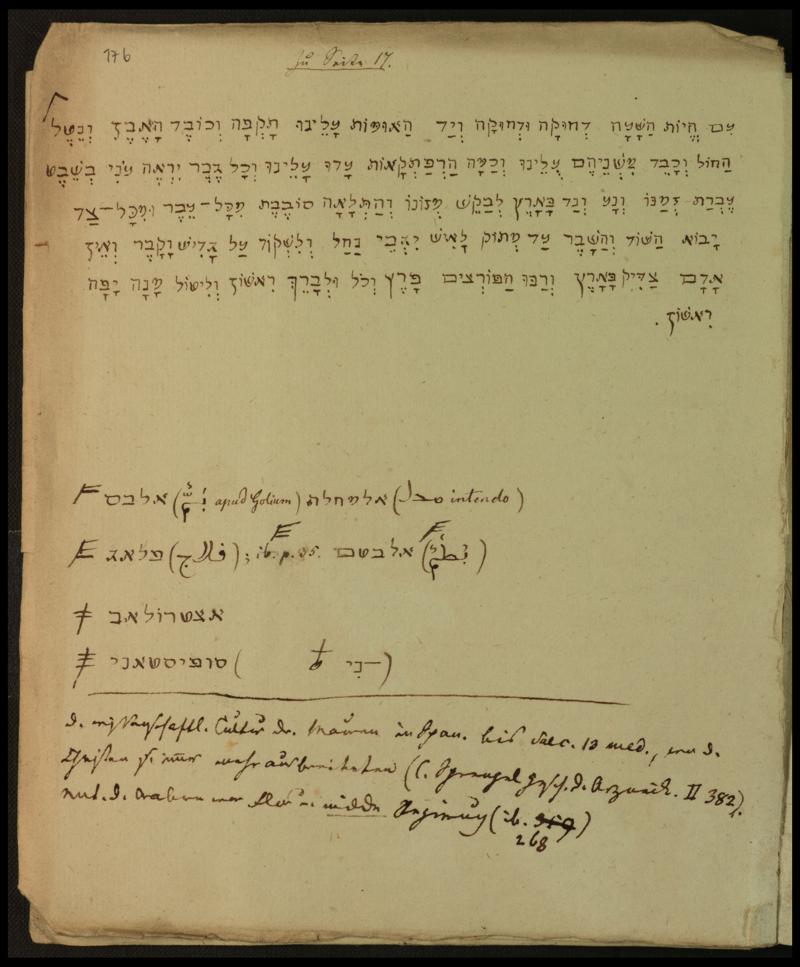 176
zu Seite 17.
עִם חֱיוֹת הַשָּׁעָה דְחוּקָה וּדְחוּקָה וְיַד הָאוּמּוֹת עָלֵינוּ תָקְפָה וְכוֹבֶד הָאֶבֶן וְנֵטֶל
הַחוֹל וְכָבֵד מִשְּׁנֵיהֶם עֻלֵינוּ וְכַמָּה הַרְפַּתְקָאוֹת עָדוּ עָלֵינוּ וְכָל גֶּבֶר יִרְאֶה עֹנִי בְּשֵׁבֶט
עֶבְרַת זְמַנּוֹ וְנָע וָנַד בָּאָרֶץ לְבַקֵּשׁ מְזוֹנוֹ וְהַתְּלָאָה סוֹבֶבֶת מִכָּל־עֵבֶר וּמִכָּל־צַד
יָבוֹא הַשּׁוֹד וְהַשֶּׁבֶר עַד מְתוּק לָאִישׁ רִגְבֵי נַחַל וְלִשְׁקוֹד עַל גָּדִישׁ וָקֶבֶר וְאֵין
אָדָם צַדִּיק בָּאָרֶץ וְרַבּוּ הַפּוֹרְצִים פֶּרֶץ וְכֹל וּלְבָרֵךְ רִאשׁוֹן וְלִיטוֹל מָנָה יָפָה
רִאשׁוֹן.
אלבסם ( apud Golium) אלמחלה ( intendo)
פלאג (فلاج); ib. p. 35. אלבטם ()
אצטרולאב
סופיסטאני ( ־נִי)
d. wissenschaftl. Cultur der Mauren in Span. bis saec. 13 med., wo d.
Christen sich immer mehr ausbreiteten (S. Sprengel Gesch. d. Arzneik. II 382).
unt. d. Arabern war (ib. 268)